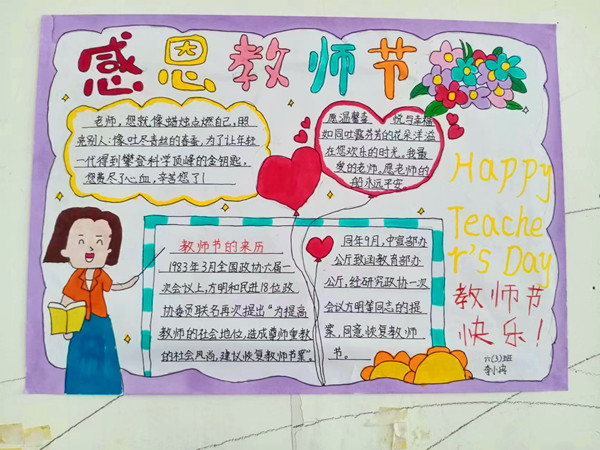 感恩教师节
老师，您就像蜡烛点燃自己，照
亮别人；像吐尽青丝的春蚕，为了让年轻
一代得到攀登科学顶峰的金钥匙，
您费尽了心血，辛苦您了！
愿温馨
悦与幸福
如同吐露芬芳的花朵洋溢
在您欢乐的时光，我最
爱的老师，愿老师的
永远平安
Happy
Teache
r's Day
教师节
快乐！
六(3)班
李小
教师节的来历
1983年3月全国政协六届一
次会议上，方明和民进18位政
协委员联名再次提出“为提高
教师的社会地位，造成尊师重教
的社会风尚，建议恢复教师节案”。
同年9月，中宣部办
公厅致函教育部办
公厅，经研究政协一次
会议方明等同志的提
案，同意恢复教师
节。